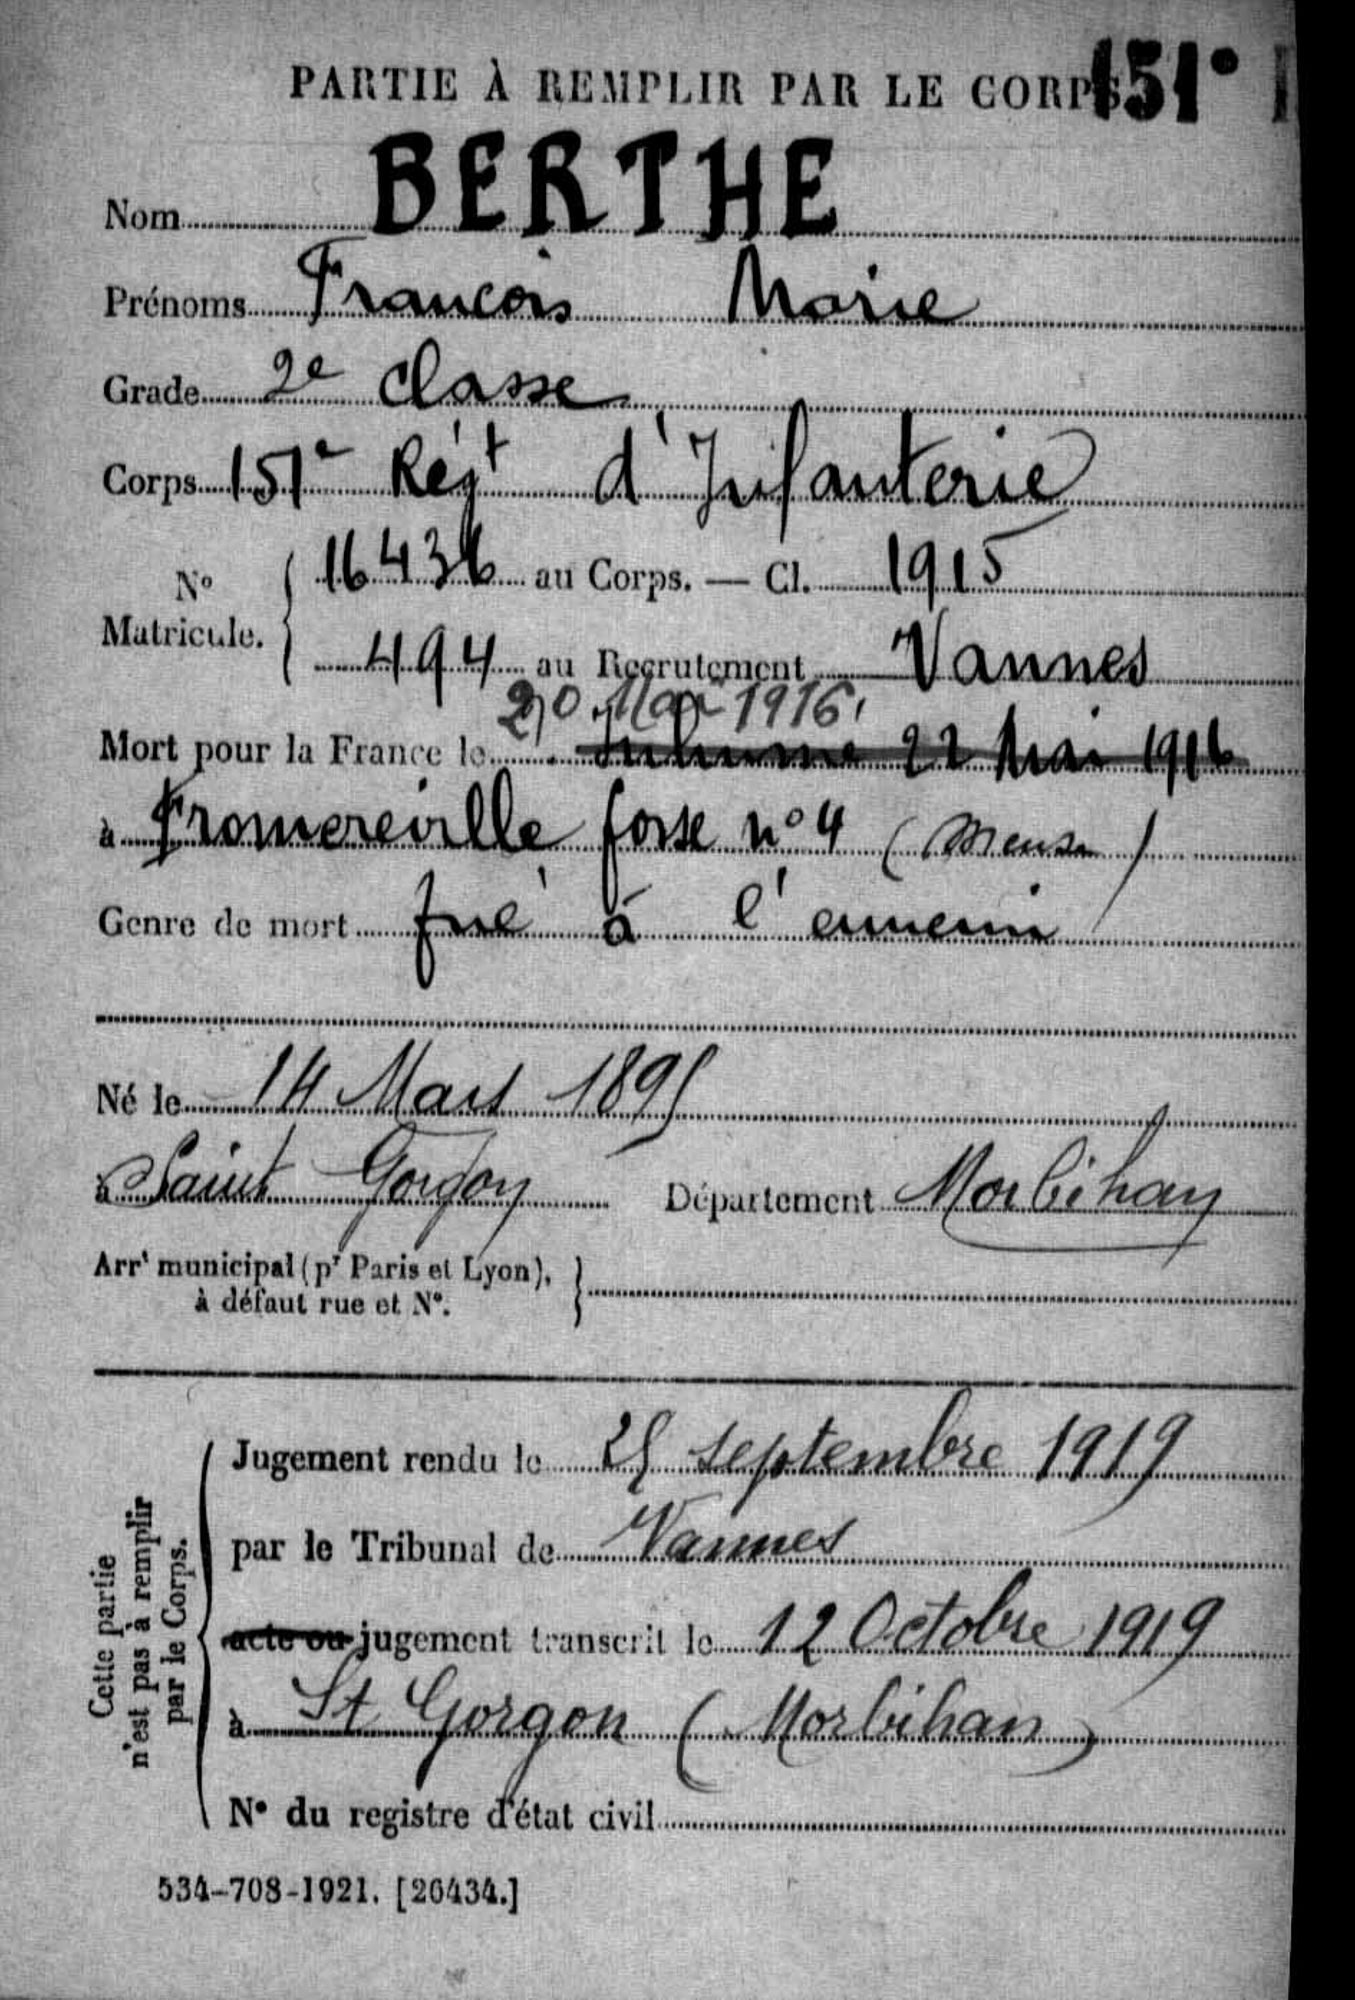 PARTIE À REMPLIR PAR LE CORPS 151°
Nom BERTHE
Prénoms François Marie
Grade 2e classe
Corps 151e Régt d'Infanterie
No Matricule. { 16436 au Corps. — Cl. 1915
494 au Recrutement Vannes
20 Mai 1916
Mort pour la France le Inhumé 22 Mai 1916
à Fromereville fosse n° 4 (Meuse)
Genre de mort tué à l'ennemi
Né le 14 Mars 1895
à Saint Gorgon Département Morbihan
Arrt municipal (pr Paris et Lyon),
à défaut rue et N°.
Cette partie
n'est pas à remplir
par le Corps.
Jugement rendu le 25 septembre 1919
par le Tribunal de Vannes
acte ou jugement transcrit le 12 Octobre 1919
à St Gorgon (Morbihan)
N° du registre d'état civil
534-708-1921. [26434.]